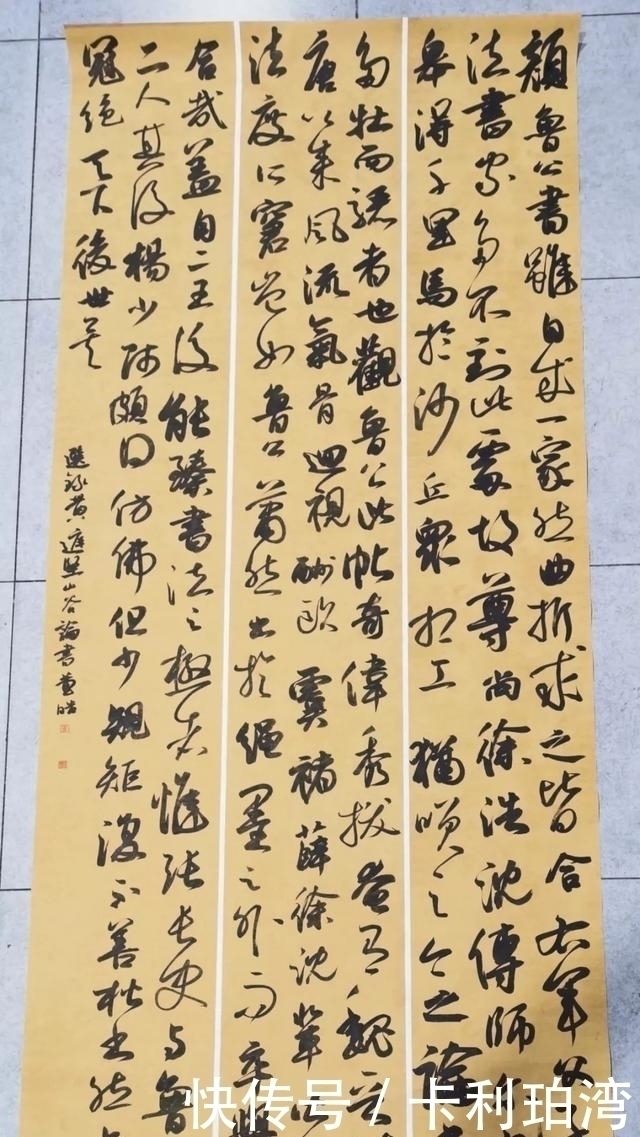 顏魯公書雖自成一家然曲折求之皆合右軍父
法書家多不到此處故尊尚徐浩沈傳師
皋得千里馬於沙丘眾相工猶笑之今之論
多牡而驪者也觀魯公此帖奇偉秀拔奄有魏晉
唐以來風流氣骨迴視歐虞褚薛徐沈輩
法度所窘豈如魯公蕭然出於繩墨之外而卒
合哉蓋自二王後能臻書法之極者惟張長史與魯
二人其後楊少師頗得仿佛但少規矩復不善楷書然
冠絕天下後世矣
選錄黃庭堅山谷論書
快传号 / 卡利珀湾